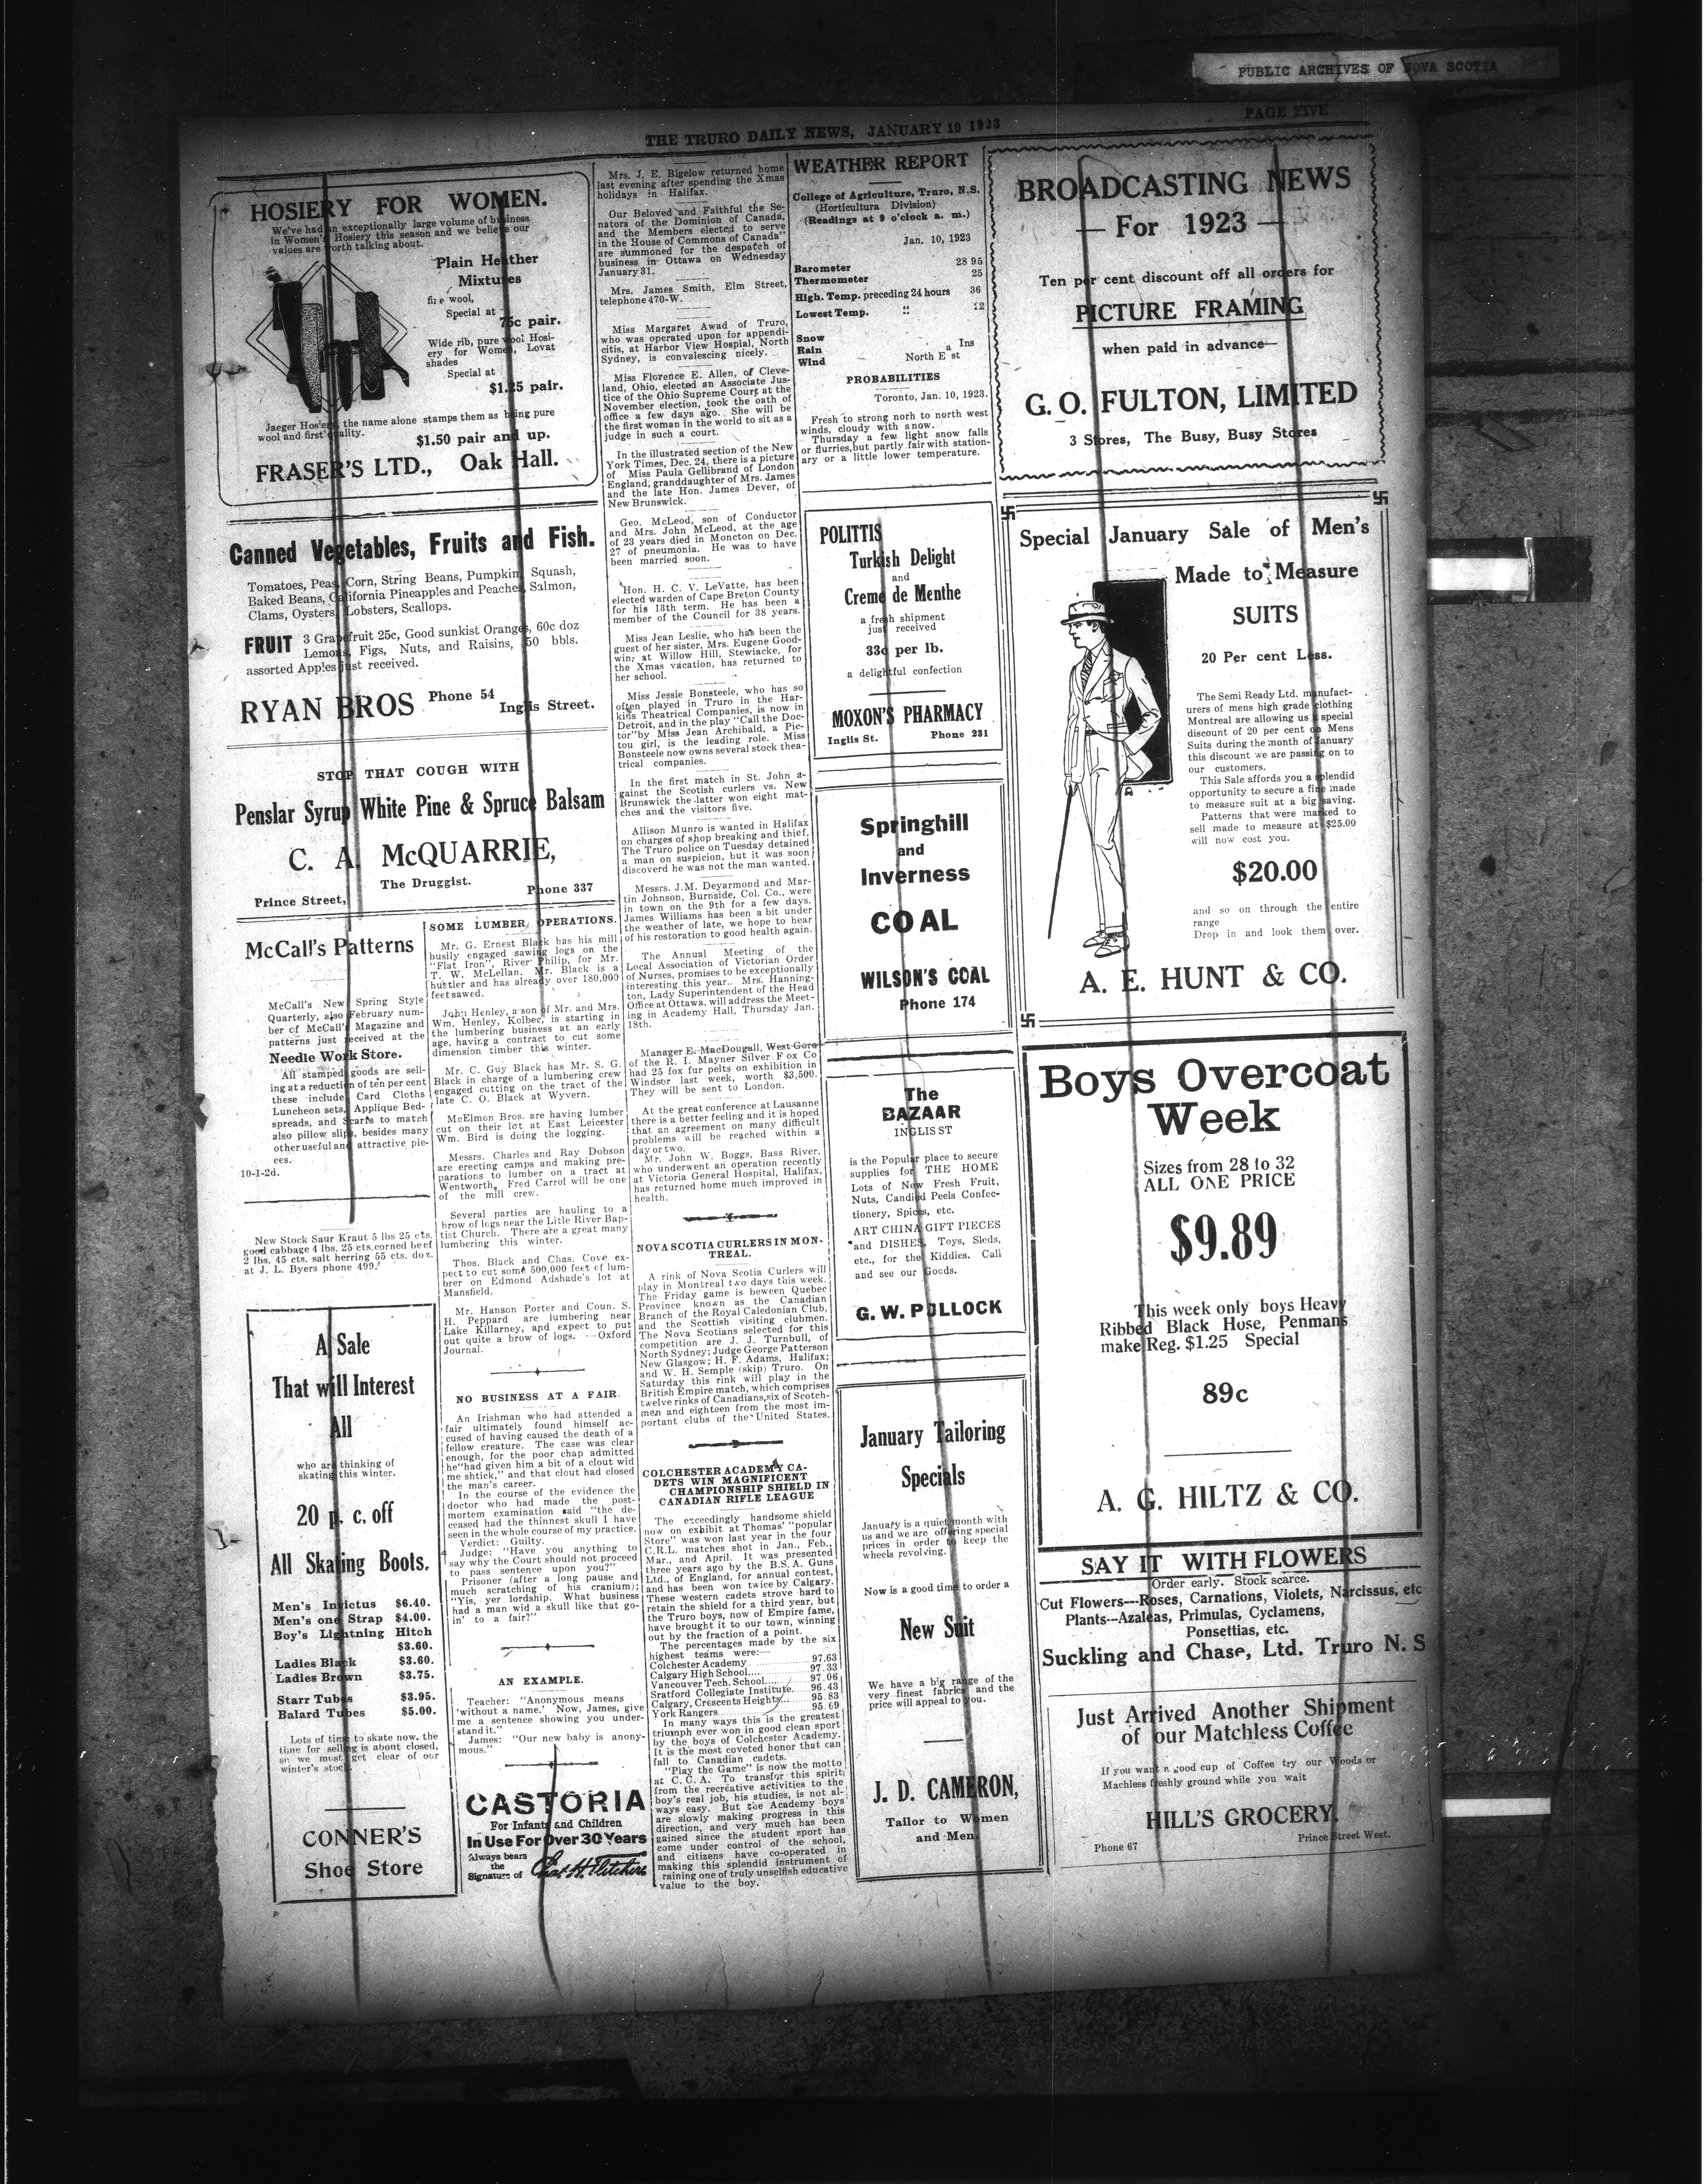 PUBLIC ARCHIVES OF NOVA SCOTIA
THE TRURO DAILY NEWS, JANUARY 10 1923
PAGE FIVE
HOSIERY FOR WOMEN.
We've had an exceptionally large volume of business
in Women's Hosiery this season and we believe our
values are worth talking about.
Plain Heather
Mixtures
fine wool,
Special at
75c pair.
Wide rib, pure wool Hosi-
ery for Women, Lovat
shades
Special at
$1.25 pair.
Jaeger Hosiery, the name alone stamps them as being pure
wool and first quality.
$1.50 pair and up.
FRASER'S LTD., Oak Hall.
Canned Vegetables, Fruits and Fish.
Tomatoes, Peas, Corn, String Beans, Pumpkin, Squash,
Baked Beans, California Pineapples and Peaches, Salmon,
Clams, Oysters, Lobsters, Scallops.
FRUIT 3 Grapefruit 25c, Good sunkist Oranges, 60c doz
Lemons, Figs, Nuts, and Raisins, 50 bbls.
assorted Apples just received.
RYAN BROS Phone 54
Inglis Street.
STOP THAT COUGH WITH
Penslar Syrup White Pine & Spruce Balsam
C. A. McQUARRIE,
The Druggist.
Prince Street,
Phone 337
McCall's Patterns
McCall's New Spring Style
Quarterly, also February num-
ber of McCall's Magazine and
patterns just received at the
Needle Work Store.
All stamped goods are sell-
ing at a reduction of ten per cent
these include Card Cloths
Luncheon sets, Applique Bed-
spreads, and Scarfs to match
also pillow slips, besides many
other useful and attractive pie-
ces.
10-1-2d.
New Stock Saur Kraut 5 lbs 25 cts.
good cabbage 4 lbs. 25 cts.corned beef
2 lbs. 45 cts. salt herring 55 cts. doz.
at J. L. Byers phone 499.
A Sale
That will Interest
All
who are thinking of
skating this winter.
20 p. c. off
All Skating Boots.
Men's Invictus $6.40.
Men's one Strap $4.00.
Boy's Lightning Hitch
$3.60.
Ladies Black $3.60.
Ladies Brown $3.75.
Starr Tubes $3.95.
Balard Tubes $5.00.
Lots of time to skate now, the
time for selling is about closed,
so we must get clear of our
winter's stock.
CONNER'S
Shoe Store
SOME LUMBER OPERATIONS.
Mr. G. Ernest Black has his mill
busily engaged sawing logs on the
"Flat Iron", River Philip, for Mr.
T. W. McLellan. Mr. Black is a
hustler and has already over 180,000
feet sawed.
John Henley, a son of Mr. and Mrs.
Wm. Henley, Kolbec, is starting in
the lumbering business at an early
age, having a contract to cut some
dimension timber this winter.
Mr. C. Guy Black has Mr. S. G.
Black in charge of a lumbering crew
engaged cutting on the tract of the
late C. O. Black at Wyvern.
McElmon Bros. are having lumber
cut on their lot at East Leicester
Wm. Bird is doing the logging.
Messrs. Charles and Ray Dobson
are erecting camps and making pre-
parations to lumber on a tract at
Wentworth. Fred Carrol will be one
of the mill crew.
Several parties are hauling to a
brow of logs near the Litle River Bap-
tist Church. There are a great many
lumbering this winter.
Thos. Black and Chas. Cove ex-
pect to cut some 500,000 feet of lum-
brer on Edmond Adshade's lot at
Mansfield.
Mr. Hanson Porter and Coun. S.
H. Peppard are lumbering near
Lake Killarney, and expect to put
out quite a brow of logs. --Oxford
Journal.
NO BUSINESS AT A FAIR.
An Irishman who had attended a
fair ultimately found himself ac-
cused of having caused the death of a
fellow creature. The case was clear
enough, for the poor chap admitted
he"had given him a bit of a clout wid
me shtick," and that clout had closed
the man's career.
In the course of the evidence the
doctor who had made the post-
mortem examination said "the de-
ceased had the thinnest skull I have
seen in the whole course of my practice.
Verdict: Guilty.
Judge: "Have you anything to
say why the Court should not proceed
to pass sentence upon you?"
Prisoner (after a long pause and
much scratching of his cranium);
"Yis, yer lordship. What business
had a man wid a skull like that go-
in' to a fair?"
AN EXAMPLE.
Teacher: "Anonymous means
'without a name.' Now, James, give
me a sentence showing you under-
stand it."
James: "Our new baby is anony-
mous."
CASTORIA
For Infants and Children
In Use For Over 30 Years
Always bears
the
Signature of Chas H. Fletcher
Mrs. J. E. Bigelow returned home
last evening after spending the Xmas
holidays in Halifax.
Our Beloved and Faithful the Se-
nators of the Dominion of Canada,
and the Members elected to serve
in the House of Commons of Canada"
are summoned for the despatch of
business in Ottawa on Wednesday
January 31.
Mrs. James Smith, Elm Street,
telephone 470-W.
Miss Margaret Awad of Truro,
who was operated upon for appendi-
citis, at Harbor View Hospial, North
Sydney, is convalescing nicely.
Miss Florence E. Allen, of Cleve-
land, Ohio, elected an Associate Jus-
tice of the Ohio Supreme Court at the
November election, took the oath of
office a few days ago. She will be
the first woman in the world to sit as a
judge in such a court.
In the illustrated section of the New
York Times, Dec. 24, there is a picture
of Miss Paula Gellibrand of London
England; granddaughter of Mrs. James
and the late Hon. James Dever, of
New Brunswick.
Geo. McLeod, son of Conductor
and Mrs. John McLeod, at the age
of 23 years died in Moncton on Dec.
27 of pneumonia. He was to have
been married soon.
Hon. H. C. V. LeVatte, has been
elected warden of Cape Breton County
for his 13th term. He has been a
member of the Council for 38 years.
Miss Jean Leslie, who has been the
guest of her sister, Mrs. Eugene Good-
win; at Willow Hill, Stewiacke, for
the Xmas vacation, has returned to
her school.
Miss Jessie Bonsteele, who has so
often played in Truro in the Har-
kins Theatrical Companies, is now in
Detroit, and in the play "Call the Doc-
tor"by Miss Jean Archibald, a Pic-
tou girl, is the leading role. Miss
Bonsteele now owns several stock thea-
trical companies.
In the first match in St. John a-
gainst the Scotish curlers vs. New
Brunswick the latter won eight mat-
ches and the visitors five.
Allison Munro is wanted in Halifax
on charges of shop breaking and thief.
The Truro police on Tuesday detained
a man on suspicion, but it was soon
discoverd he was not the man wanted.
Messrs. J.M. Deyarmond and Mar-
tin Johnson, Burnside, Col. Co., were
in town on the 9th for a few days.
James Williams has been a bit under
the weather of late, we hope to hear
of his restoration to good health again.
The Annual Meeting of the
Local Association of Victorian Order
of Nurses, promises to be exceptionally
interesting this year.. Mrs. Hanning-
ton, Lady Superintendent of the Head
Office at Ottawa, will address the Meet-
ing in Academy Hall, Thursday Jan.
18th.
Manager E. MacDougall, West Gore
of the R. I. Mayner Silver Fox Co
had 25 fox fur pelts on exhibition in
Windsor last week, worth $3,500.
They will be sent to London.
At the great conference at Lausanne
there is a better feeling and it is hoped
that an agreement on many difficult
problems will be reached within a
day or two.
Mr. John W. Boggs, Bass River,
who underwent an operation recently
at Victoria General Hospital, Halifax,
has returned home much improved in
health.
NOVA SCOTIA CURLERS IN MON-
TREAL.
A rink of Nova Scotia Curlers will
play in Montreal two days this week.
The Friday game is beween Quebec
Province known as the Canadian
Branch of the Royal Caledonian Club,
and the Scottish visiting clubmen.
The Nova Scotians selected for this
competition are J. J. Turnbull, of
North Sydney; Judge George Patterson
New Glasgow; H. F. Adams, Halifax;
and W. H. Semple (skip) Truro. On
Saturday this rink will play in the
British Empire match, which comprises
twelve rinks of Canadians,six of Scotch-
men and eighteen from the most im-
portant clubs of the United States.
COLCHESTER ACADEMY CA-
DETS WIN MAGNIFICENT
CHAMPIONSHIP SHIELD IN
CANADIAN RIFLE LEAGUE
The exceedingly handsome shield
now on exhibit at Thomas' "popular
Store" was won last year in the four
C.R.L. matches shot in Jan., Feb.,
Mar., and April. It was presented
three years ago by the B.S.A. Guns
Ltd., of England, for annual contest,
and has been won twice by Calgary.
These western cadets strove hard to
retain the shield for a third year, but
the Truro boys, now of Empire fame,
have brought it to our town, winning
out by the fraction of a point.
The percentages made by the six
highest teams were:—
Colchester Academy 97.63
Calgary High School.... 97.33
Vancouver Tech. School.... 97.06
Sratford Collegiate Institute... 96.43
Calgary, Crescents Heights... 95.83
York Rangers 95.69
In many ways this is the greatest
triumph ever won in good clean sport
by the boys of Colchester Academy.
It is the most coveted honor that can
fall to Canadian cadets.
"Play the Game" is now the motto
at C.C.A. To transfer this spirit
from the recreative activities to the
boy's real job, his studies, is not al-
ways easy. But the Academy boys
are slowly making progress in this
direction, and very much has been
gained since the student sport has
come under control of the school,
and citizens have co-operated in
making this splendid instrument of
raining one of truly unselfish educative
value to the boy.
WEATHER REPORT
College of Agriculture, Truro, N.S.
(Horticultura Division)
(Readings at 9 o'clock a. m.)
Jan. 10, 1923
Barometer 28 95
Thermometer 25
High. Temp. preceding 24 hours 36
Lowest Temp. " 12
Snow
Rain a Ins
Wind North E st
PROBABILITIES
Toronto, Jan. 10, 1923.
Fresh to strong norh to north west
winds, cloudy with snow.
Thursday a few light snow falls
or flurries,but partly fair with station-
ary or a little lower temperature.
POLITTIS
Turkish Delight
and
Creme de Menthe
a fresh shipment
just received
33c per lb.
a delightful confection
MOXON'S PHARMACY
Inglis St. Phone 231
Springhill
and
Inverness
COAL
WILSON'S COAL
Phone 174
The
BAZAAR
INGLIS ST
is the Popular place to secure
supplies for THE HOME
Lots of New Fresh Fruit,
Nuts, Candied Peels Confec-
tionery, Spices, etc.
ART CHINA GIFT PIECES
and DISHES, Toys, Sleds,
etc., for the Kiddies. Call
and see our Goods.
G. W. POLLOCK
January Tailoring
Specials
January is a quiet month with
us and we are offering special
prices in order to keep the
wheels revolving.
Now is a good time to order a
New Suit
We have a big range of the
very finest fabrics and the
price will appeal to you.
J. D. CAMERON,
Tailor to Women
and Men
BROADCASTING NEWS
— For 1923 —
Ten per cent discount off all orders for
PICTURE FRAMING
when paid in advance—
G. O. FULTON, LIMITED
3 Stores, The Busy, Busy Stores
Special January Sale of Men's
Made to Measure
SUITS
20 Per cent Less.
The Semi Ready Ltd. manufact-
urers of mens high grade clothing
Montreal are allowing us a special
discount of 20 per cent on Mens
Suits during the month of January
this discount we are passing on to
our customers.
This Sale affords you a splendid
opportunity to secure a fine made
to measure suit at a big saving.
Patterns that were marked to
sell made to measure at $25.00
will now cost you.
$20.00
and so on through the entire
range
Drop in and look them over.
A. E. HUNT & CO.
Boys Overcoat
Week
Sizes from 28 to 32
ALL ONE PRICE
$9.89
This week only boys Heavy
Ribbed Black Hose, Penmans
make Reg. $1.25 Special
89c
A. G. HILTZ & CO.
SAY IT WITH FLOWERS
Order early. Stock scarce.
Cut Flowers---Roses, Carnations, Violets, Narcissus, etc
Plants---Azaleas, Primulas, Cyclamens,
Ponsettias, etc.
Suckling and Chase, Ltd. Truro N. S
Just Arrived Another Shipment
of our Matchless Coffee
If you want a good cup of Coffee try our Woods or
Machless freshly ground while you wait
HILL'S GROCERY.
Phone 67 Prince Street West.